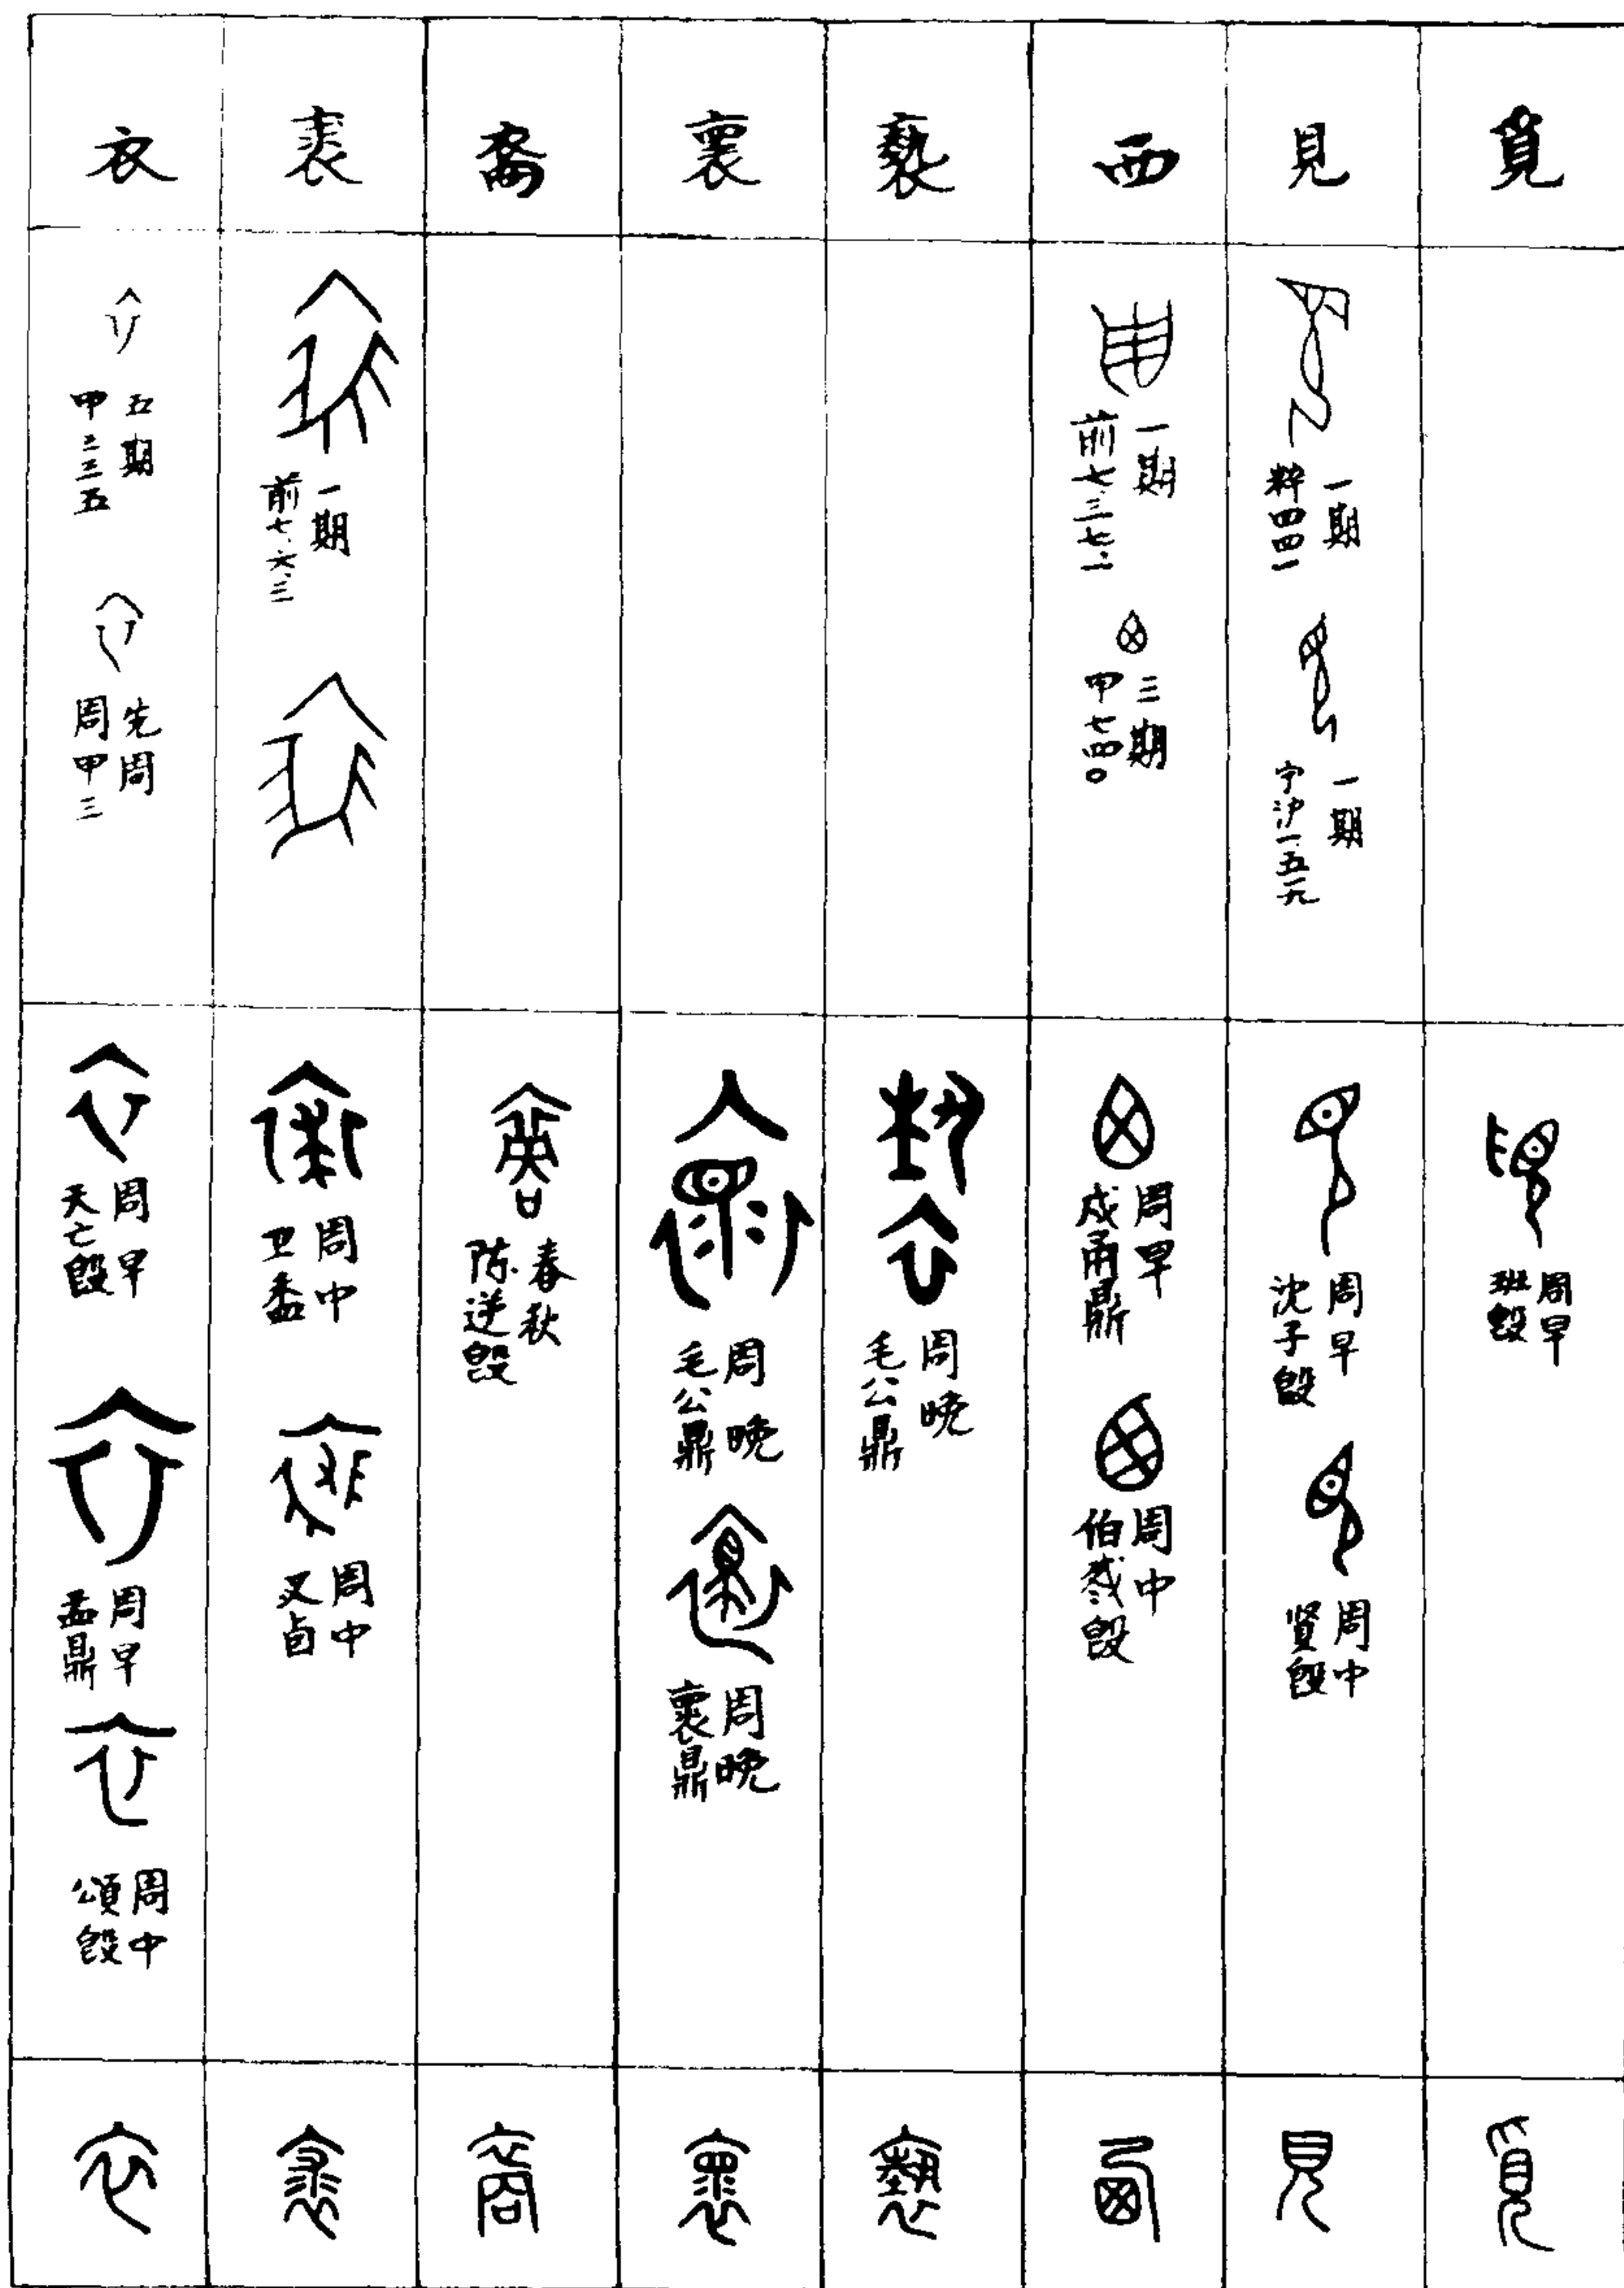 衣 裘 裔 褱 褻 西 見 覓
五期
先周
周甲三
一期
前七·六·三
一期
前七·三七·一
三期
甲七四〇
一期
粹四四一
一期
宁沪一·五一九
周早
天亡𣪘
周早
盂鼎
周中
頌𣪘
周中
卫盉
周中
又卣
春秋
陈逆𣪘
周晚
毛公鼎
周晚
褱鼎
周晚
毛公鼎
周早
戍甬鼎
周中
伯𢦚𣪘
周早
沈子𣪘
周中
賢𣪘
周早
班𣪘
衣 裘 裔 褱 褻 西 見 覓